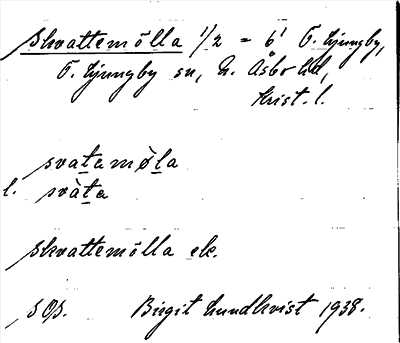 Skvattemölla 1/2 = 6' Ö. Ljungby,
Ö. Ljungby sn, N. Åsbo hd,
Krist. l.
svatamø̀la
l. svàta
Skvattemölla ek.
SOp. Birgit Lundkvist 1938.